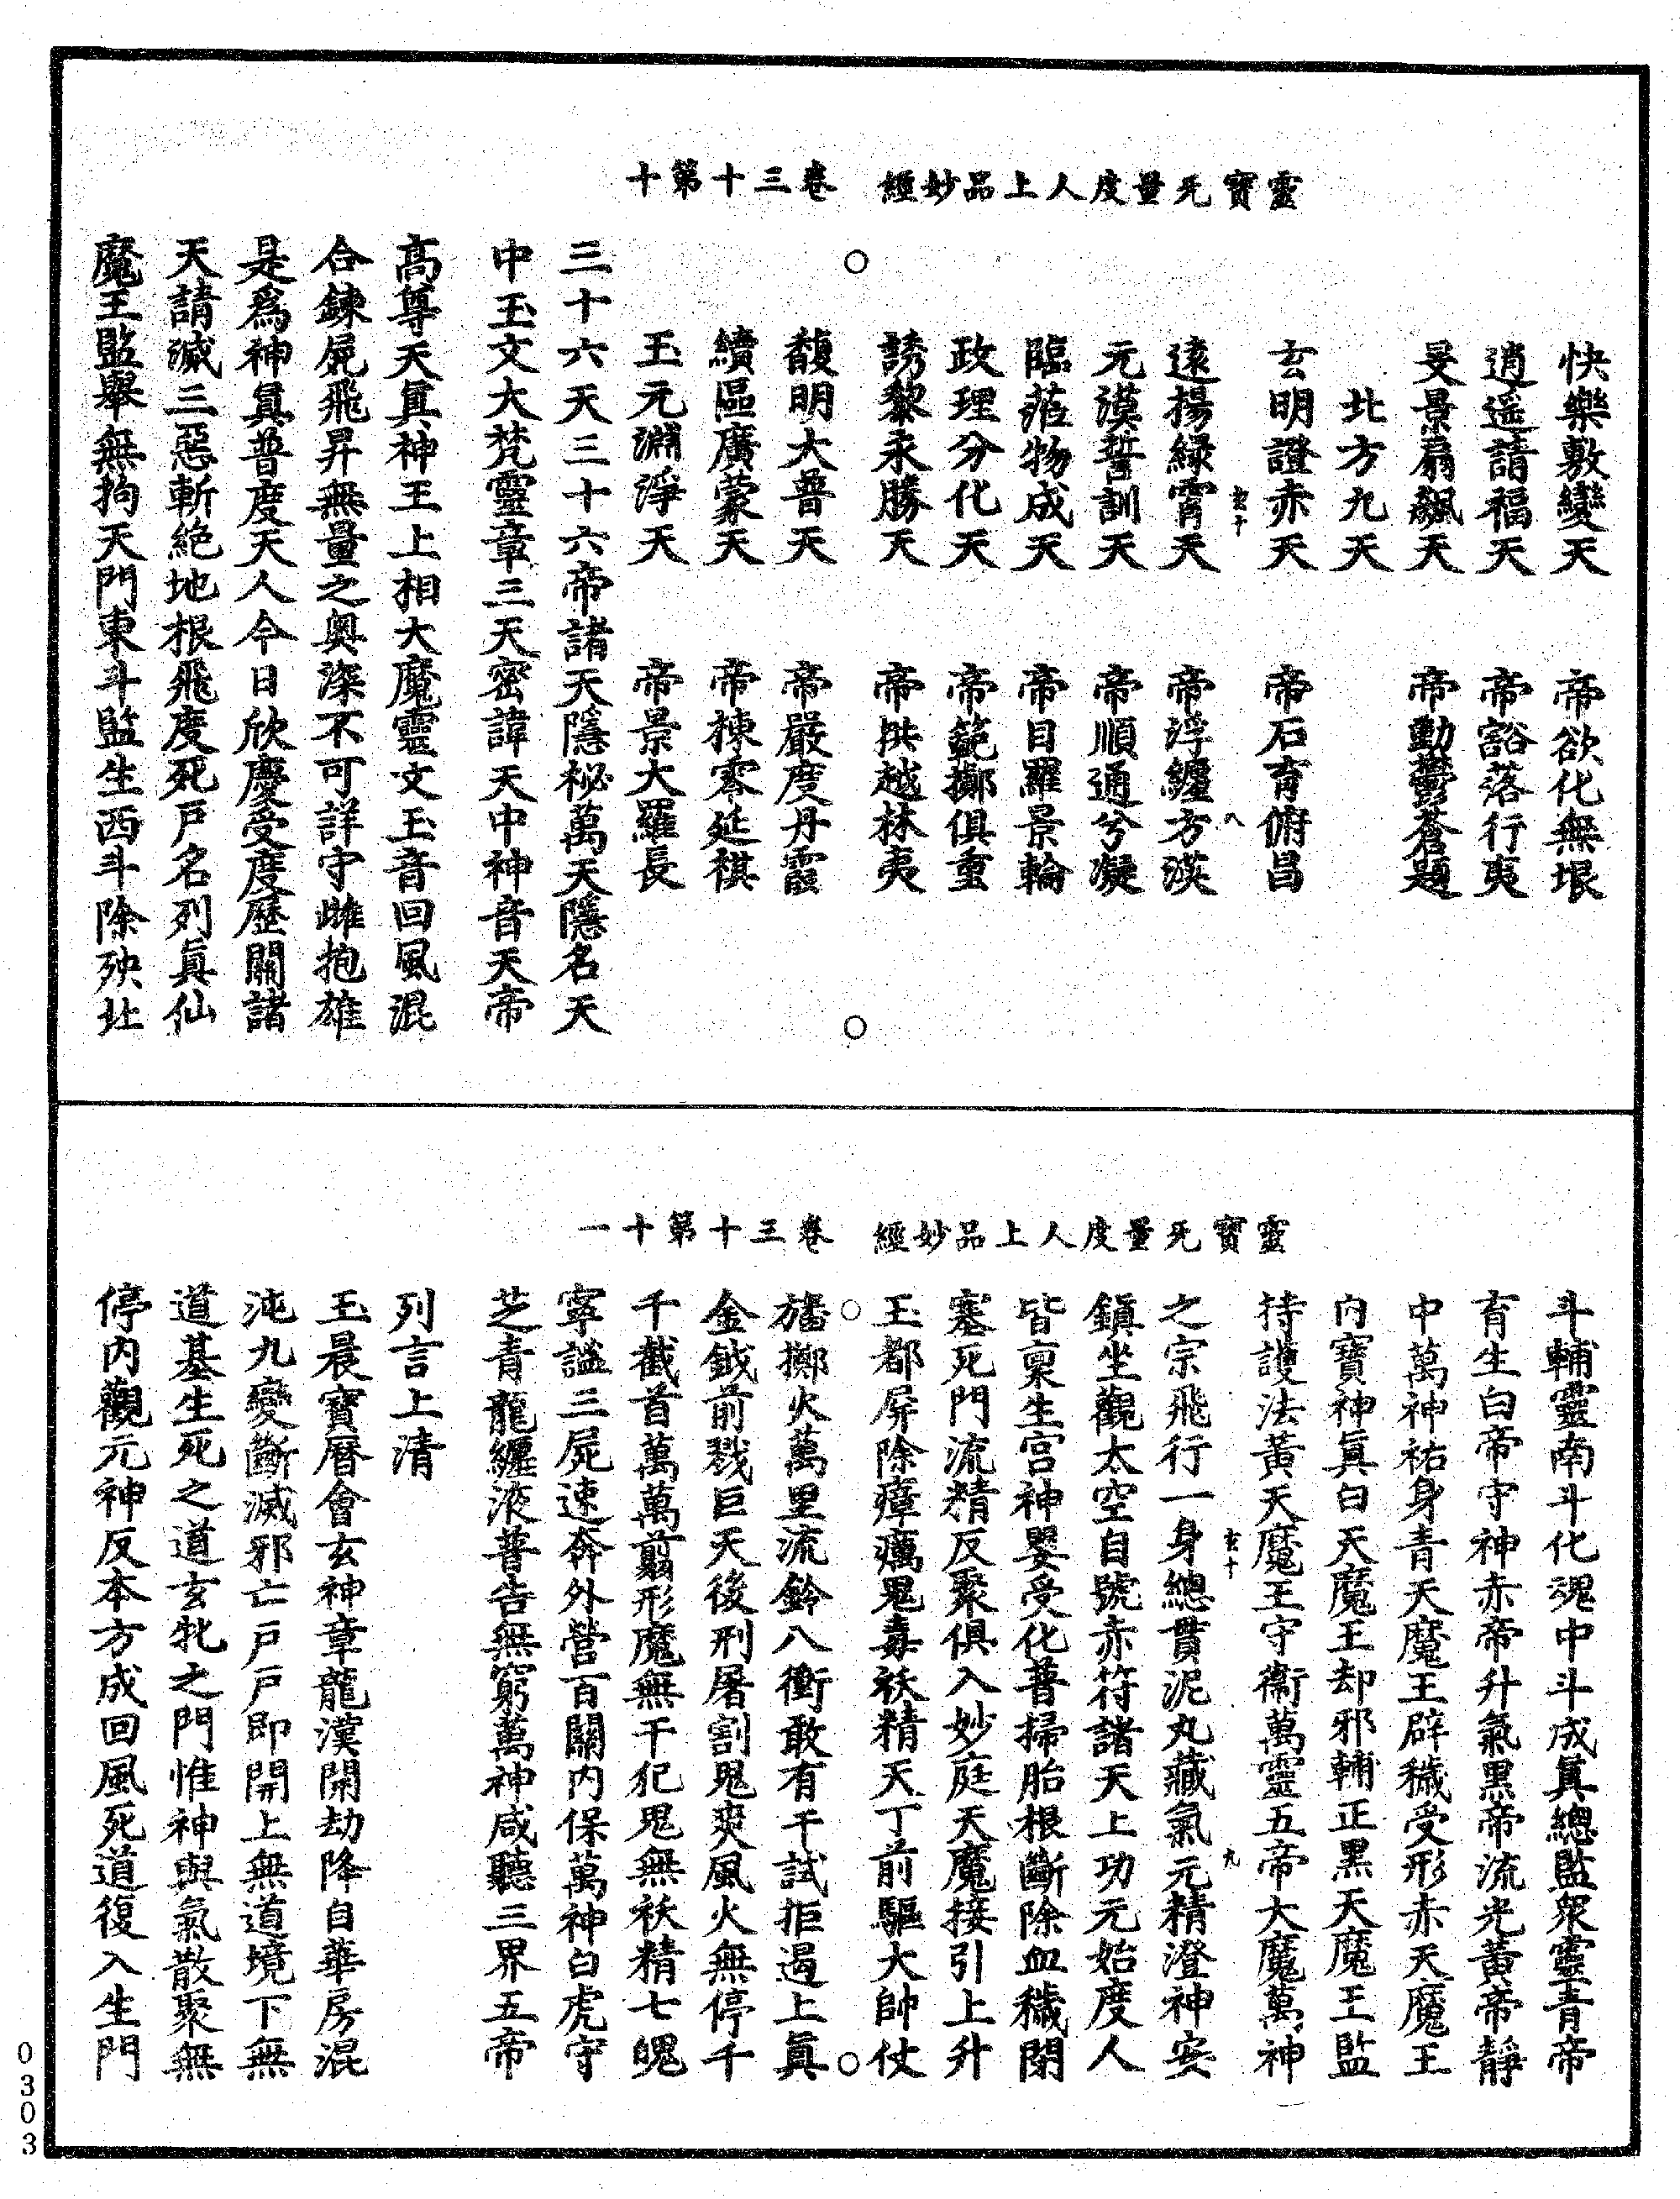 靈寶无量度人上品妙經　卷三十第十
快樂敷變天　帝欲化無垠
逍遥請福天　帝豁落行夷
旻景扇飆天　帝動鬱蒼題
北方九天
玄明證赤天　帝石育俯昌
玄十　八
遠揚綠霄天　帝浮纏方漢
元漠誓訓天　帝順通兮凝
臨菈物成天　帝目羅景輪
政理分化天　帝範擲俱重
誘黎永勝天　帝拱越林夷
馥明大普天　帝嚴度丹霞
續區廣蒙天　帝棟寥延棋
玉元淵淨天　帝景大羅長
三十六天三十六帝諸天隱祕萬天隱名天
中玉文大梵靈章三天密諱天中神音天帝
高尊天真神王上相大魔靈文玉音回風混
合鍊屍飛昇無量之奥深不可詳守雌抱雄
是爲神真普度天人今日欣慶受度歷關諸
天請滅三惡斬絶地根飛度死戸名列真仙
魔王監舉無拘天門東斗監生西斗除殃北
靈寶无量度人上品妙經　卷三十第十一
斗輔靈南斗化魂中斗成真總監衆靈青帝
育生白帝守神赤帝升氣黑帝流光黃帝靜
中萬神祐身青天魔王辟穢受形赤天魔王
内寶神真白天魔王却邪輔正黑天魔王監
持護法黃天魔王守衞萬靈五帝大魔萬神
玄十　九
之宗飛行一身總貫泥丸藏氣元精澄神安
鎮坐觀太空自號赤符諸天上功元始度人
皆稟生宫神嬰受化普掃胎根斷除血穢閉
塞死門流精反聚俱入妙庭天魔接引上升
玉都屏除瘴癘鬼毒祅精天丁前驅大帥仗
旛擲火萬里流鈴八衝敢有干試拒遏上真
金鉞前戮巨天後刑屠割鬼爽風火無停千
千截首萬萬翦形魔無干犯鬼無祅精七魄
寧謐三屍速奔外營百關内保萬神白虎守
芝青龍纏液普告無窮萬神咸聽三界五帝
列言上清
玉晨寶曆會玄神章龍漢開劫降自華房混
沌九變斷滅邪亡戸戸即開上無道境下無
道基生死之道玄牝之門惟神與氣散聚無
停内觀元神反本方成回風死道復入生門
0303